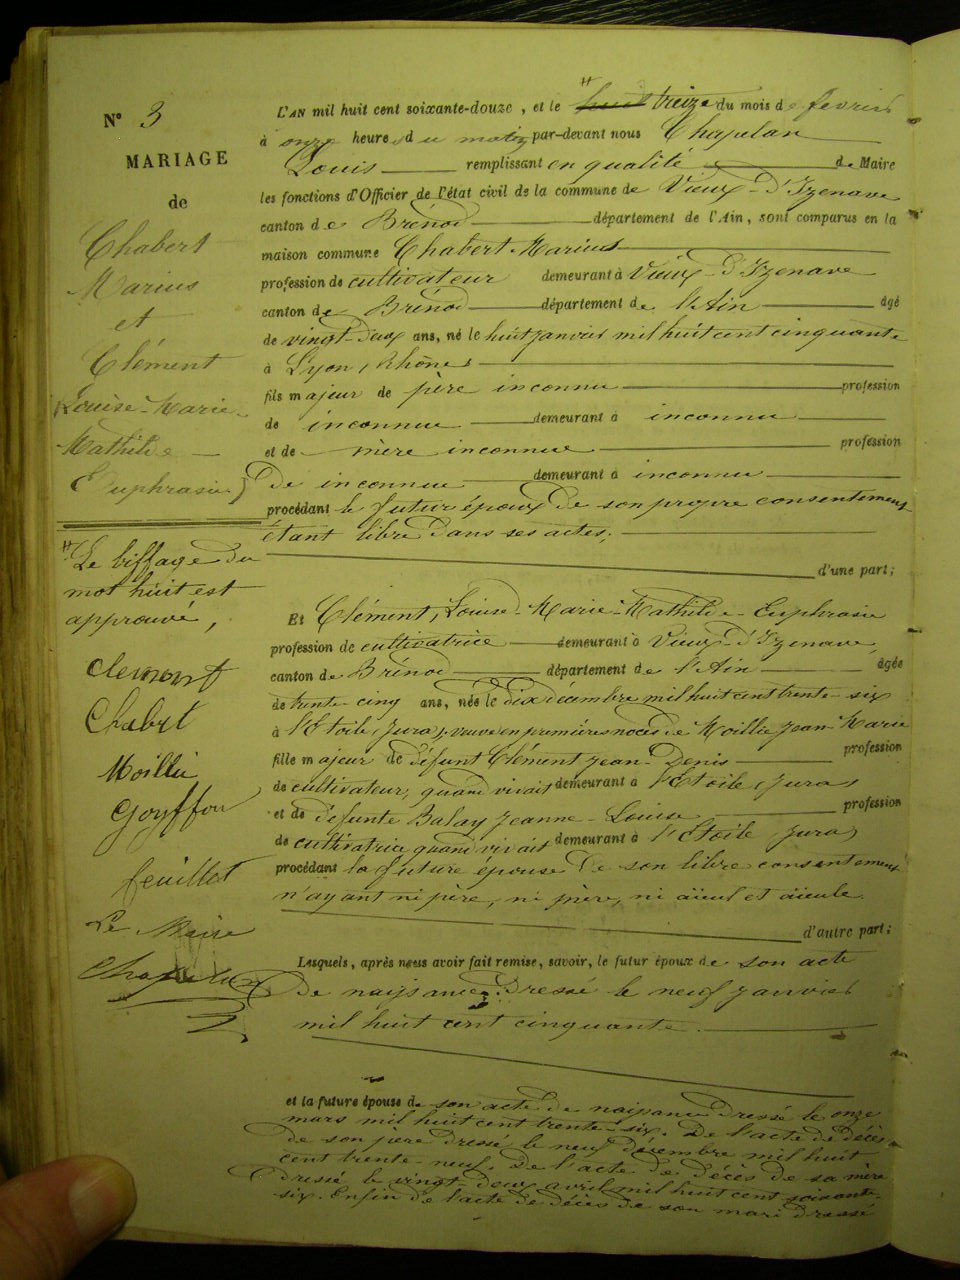 N° 3
MARIAGE
de
Chabert
Marius
et
Clément
Louise-Marie-
Mathilde
Euphrasie
# Le biffage du
mot huit est
approuvé,
Clement
Chabert
Moillie
Goyffon
feuillet
Le Maire
Chapelan
L'AN mil huit cent soixante-douze, et le huit # treize du mois de février
à onze heures du matin par-devant nous Chapelan
Louis remplissant en qualité de Maire
les fonctions d'Officier de l'état civil de la commune de Vieux-d'Izenave
canton de Brénod département de l'Ain, sont comparus en la
maison commune Chabert Marius
profession de cultivateur demeurant à Vieux-d'Izenave
canton de Brénod département de l'Ain âgé
de vingt-deux ans, né le huit janvier mil huit cent cinquante
à Lyon, Rhône,
fils majeur de père inconnu profession
de inconnue demeurant à inconnu
et de mère inconnue profession
De inconnue demeurant à inconnu
procédant le futur époux de son propre consentement
étant libre dans ses actes;
d'une part;
Et Clément, Louise-Marie-Mathilde-Euphrasie
profession de cultivatrice demeurant à Vieux-d'Izenave,
canton de Brénod département de l'Ain âgée
de trente-cinq ans, née le dix décembre mil huit cent trente-six
à l'Etoile (Jura), veuve en premières noces de Moillie Jean-Marie
fille majeur de défunt Clément Jean-Denis profession
de cultivateur, quand vivait demeurant à l'Etoile (Jura)
et de défunte Balay Jeanne-Louise profession
de cultivatrice quand vivait demeurant à l'Etoile (Jura)
procédant la future épouse de son libre consentement
n'ayant ni père, ni mère, ni aïeul et aïeule.
d'autre part;
Lesquels, après nous avoir fait remise, savoir, le futur époux de son acte
De naissance dressé le neuf janvier
mil huit cent cinquante.
et la future épouse de son acte de naissance dressé le onze
mars mil huit cent trente-six. De l'acte de décès
de son père dressé le neuf décembre mil huit
cent trente-neuf. De l'acte de décès de sa mère
dressé le vingt-deux avril mil huit cent soixante-
six. Enfin de l'acte de décès de son mari dressé